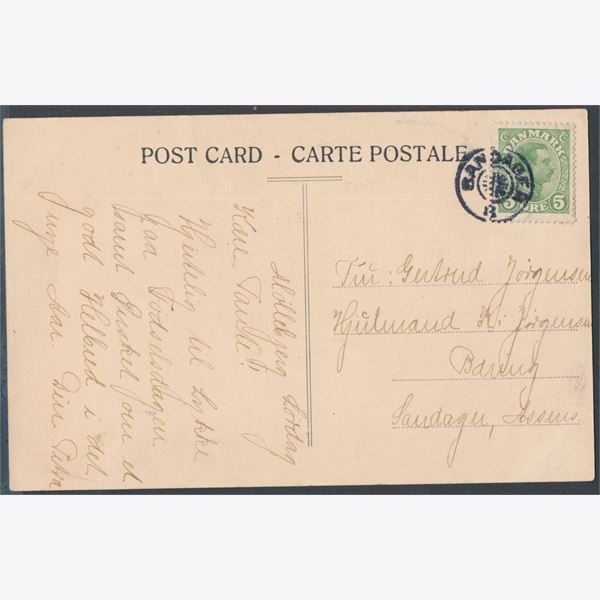 POST CARD - CARTE POSTALE
DANMARK
5 ØRE 5
SANDAGER
Møllebjerg Lørdag
Kære Tante!
Hjertelig til Lykke
paa Fødselsdagen
samt Ønsket om et
godt Helbred i det
nye Aar. Din Petra
Frū: Gertrud Jørgensen
Hjulmand K. Jørgensen
Baring
Sandager, Assens